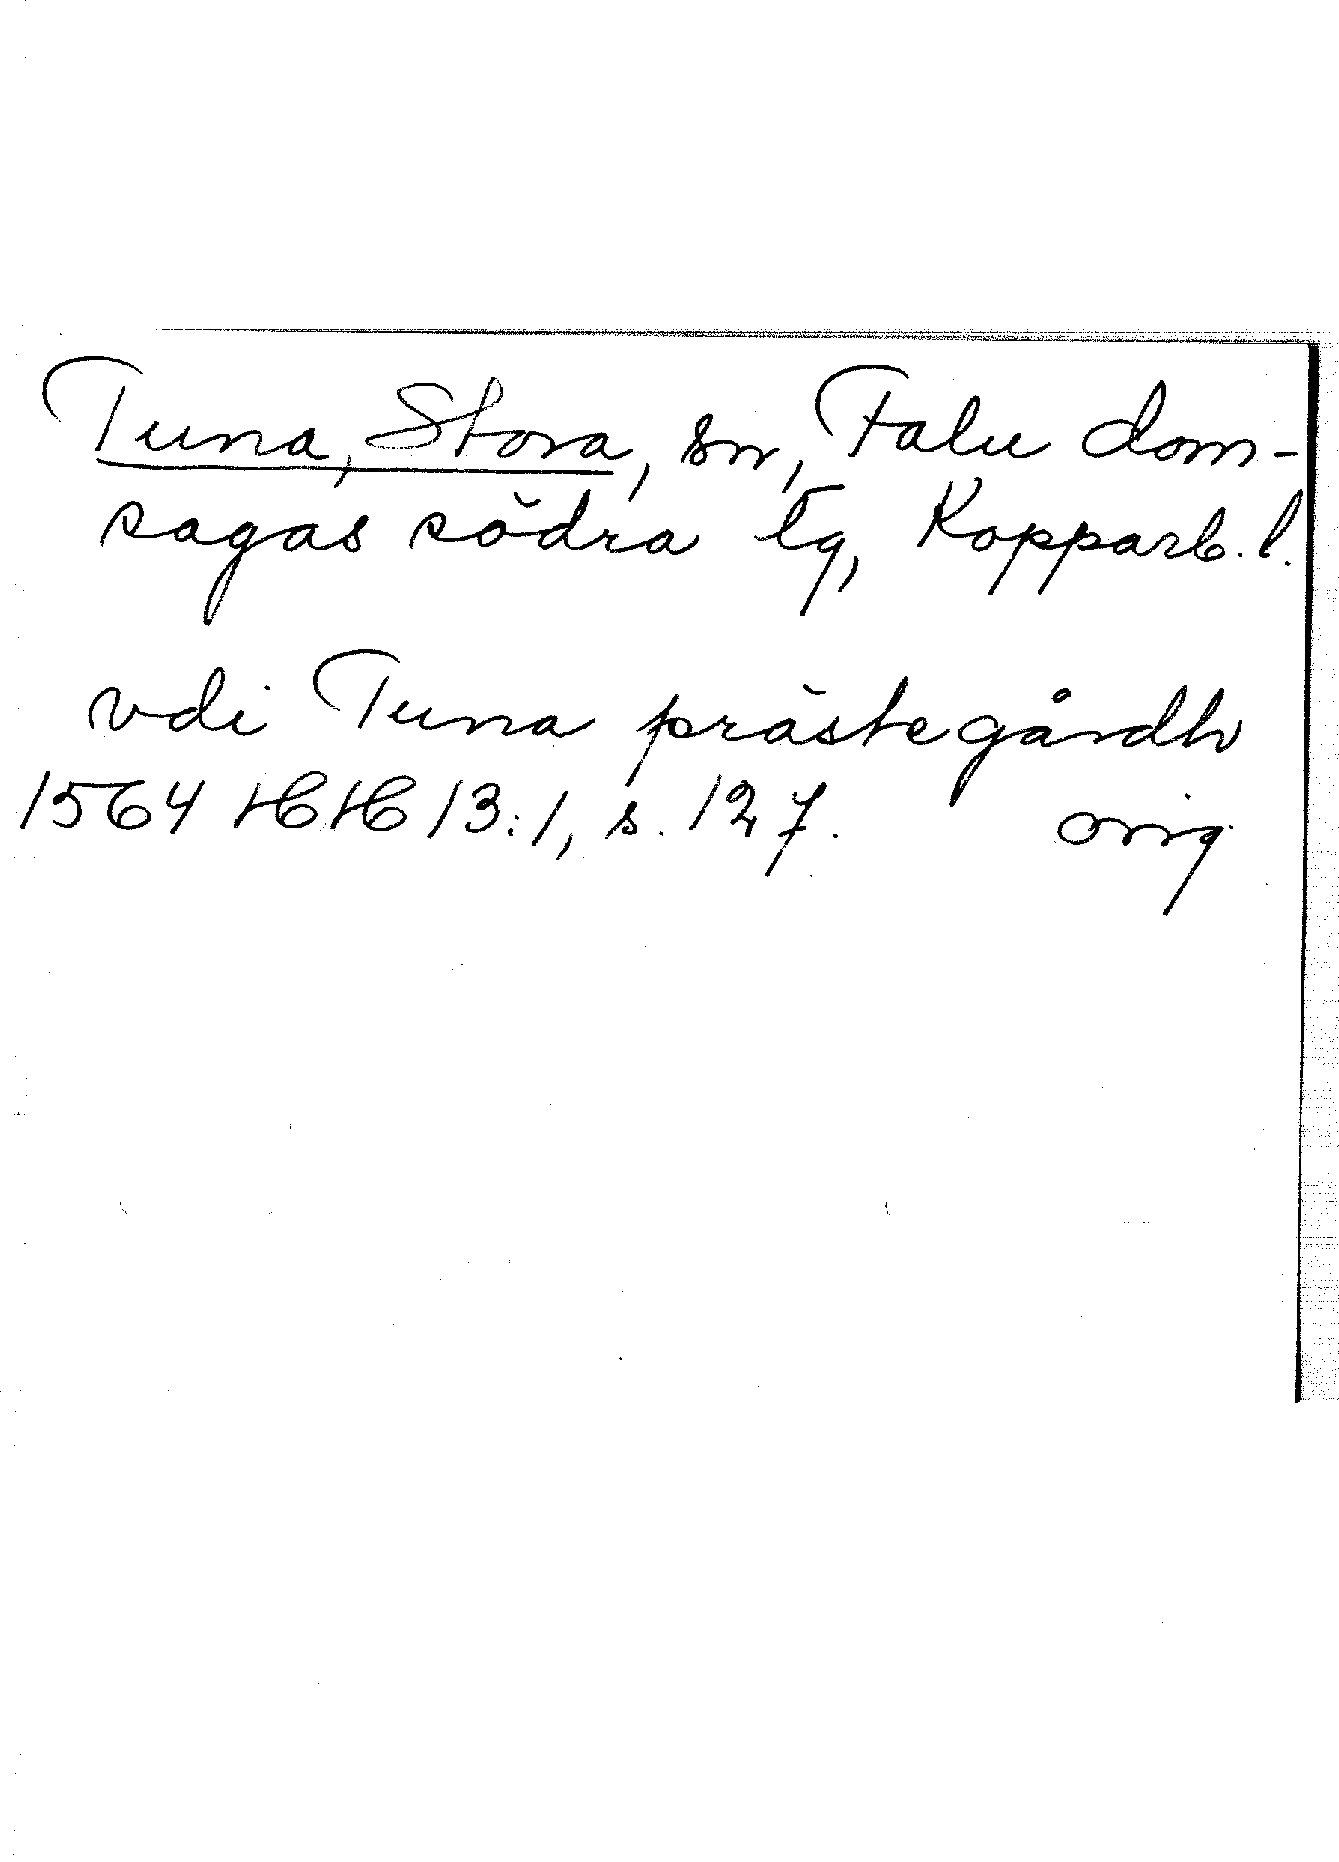 Tuna, Stora, sn, Falu dom-
sagas södra tg, Kopparb. l.
vdi Tuna prästegårdh
1564 HH 13:1, s. 127. orig